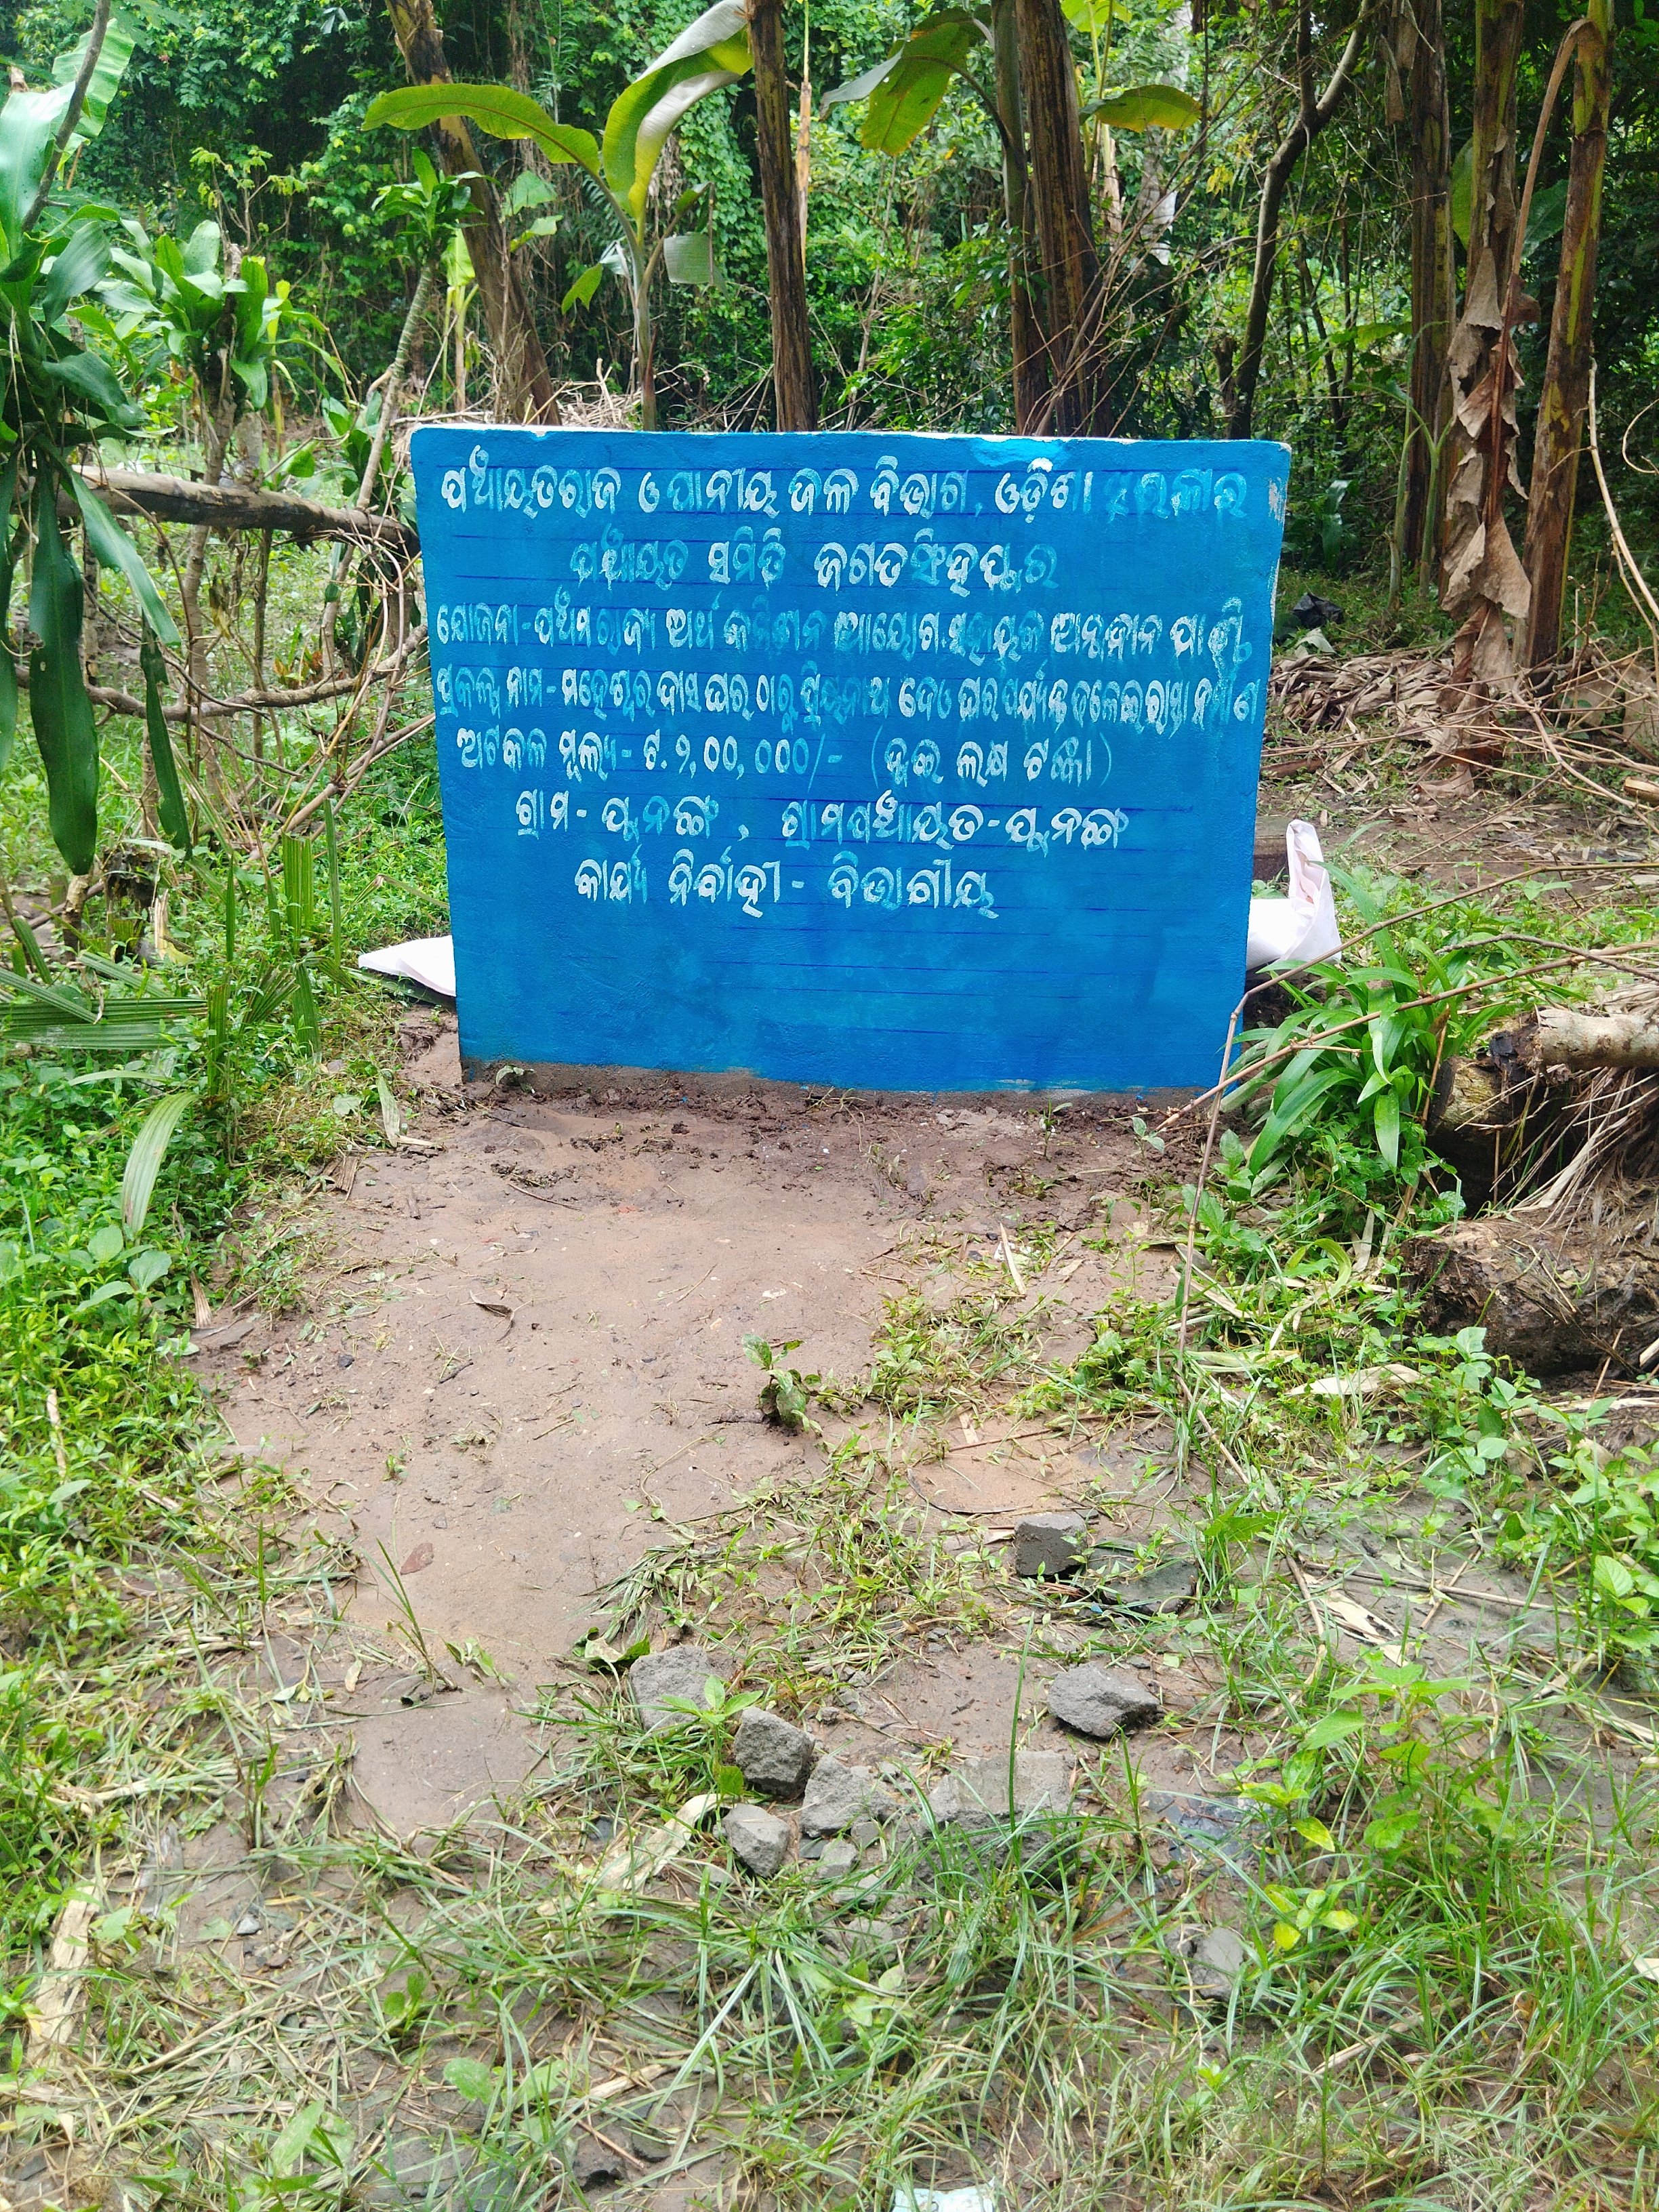 ପଞ୍ଚାୟତିରାଜ ଓ ପାନୀୟ ଜଳ ବିଭାଗ, ଓଡ଼ିଶା ସରକାର
ପଞ୍ଚାୟତ ସମିତି ଜଗତସିଂହପୁର
ଯୋଜନା - ପଞ୍ଚମ ରାଜ୍ୟ ଅର୍ଥ କମିଶନ ଆୟୋଗ ସହାୟକ ଅନୁଦାନ ପାଣ୍ଠି
ପ୍ରକଳ୍ପ ନାମ - ମହେଶ୍ୱର ଦାସ ଘର ଠାରୁ ପ୍ରିୟନାଥ ଦେଓ ଘର ପର୍ଯ୍ୟନ୍ତ ଢଳେଇ ରାସ୍ତା ନିର୍ମାଣ
ଅଟକଳ ମୂଲ୍ୟ - ଟ. ୨,୦୦,୦୦୦/- (ଦୁଇ ଲକ୍ଷ ଟଙ୍କା)
ଗ୍ରାମ - ପୁନଙ୍ଗ, ଗ୍ରାମପଞ୍ଚାୟତ - ପୁନଙ୍ଗ
କାର୍ଯ୍ୟ ନିର୍ବାହୀ - ବିଭାଗୀୟ